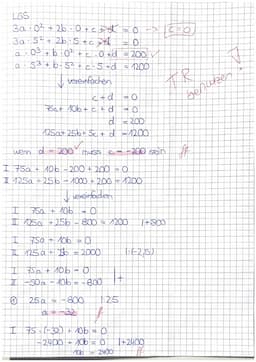 LGS
3a · 0² + 2b · 0 + c + d = 0 → c=0
3a · 5² + 2b · 5 + c + d = 0
a · 0³ + b · 0² + c · 0 + d = 200 ✓
a · 5³ + b · 5² + c · 5 + d = 1200
↓ vereinfachen
TR benutzen!
c + d = 0
75a + 10b + c + d = 0
d = 200
125a + 25b + 5c + d = 1200
wenn d = 200 ✓ muss c = -200 sein f
I 75a + 10b - 200 + 200 = 0
II 125a + 25b - 1000 + 200 = 1200
↓ vereinfachen
I 75a + 10b = 0
II 125a + 25b - 800 = 1200 |+800
I 75a + 10b = 0
II 125a + b = 2000 |·(-2,5)
I 75a + 10b = 0
II -50a - 10b = -800 |+
25a = -800 |:25
a = -32 f
I 75 · (-32) + 10b = 0
-2400 + 10b = 0 |+2400
10b = 2400 f